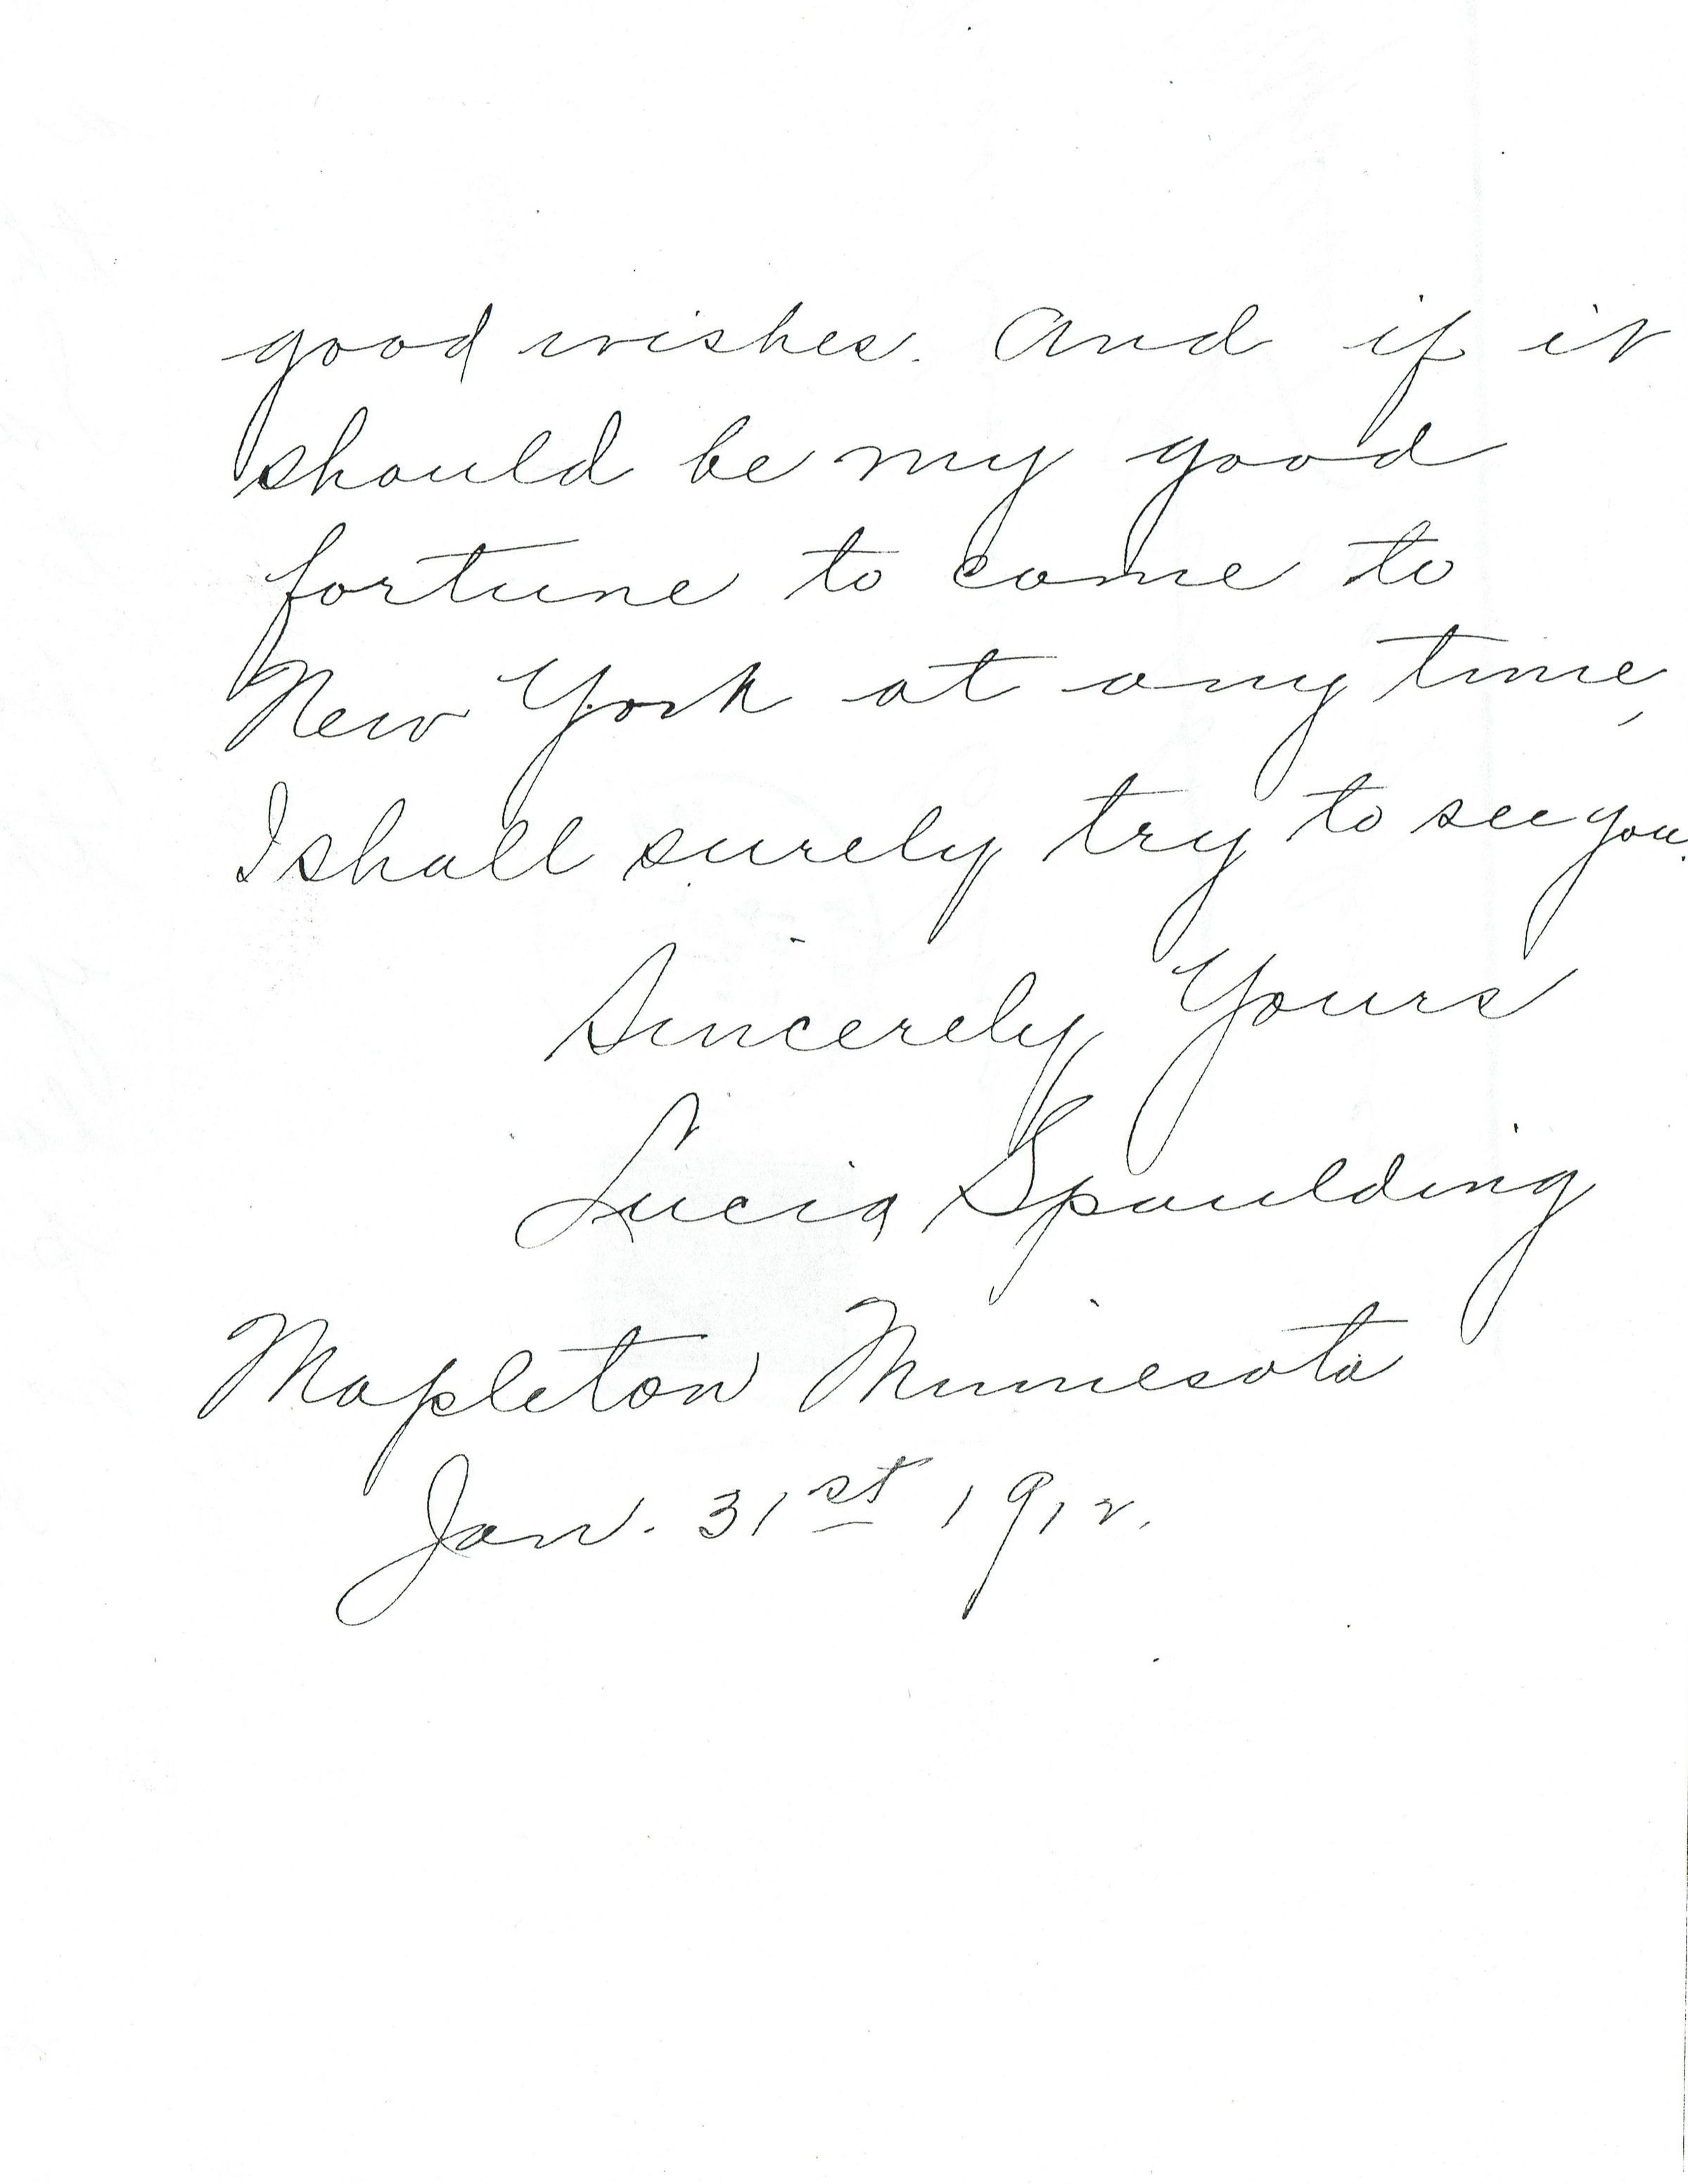 good wishes. And if it
should be my good
fortune to come to
New York at any time,
I shall surely try to see you.
Sincerely Yours
Lucia Spaulding
Mapleton Minnesota
Jan. 31st 1912.